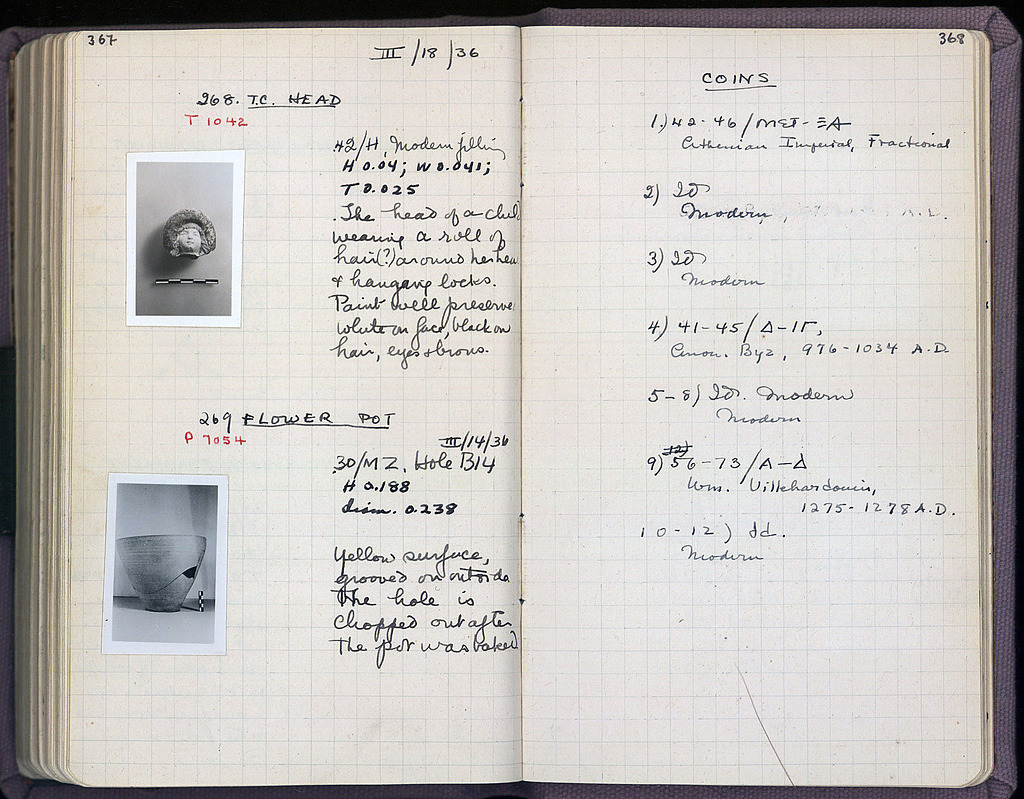 367
III/18/36
268. T.C. HEAD
T 1042
42/H, Modern filling
H 0.04; W 0.041;
T 0.025
The head of a chil
wearing a roll of
hair(?) around her hea
& hanging locks.
Paint well preserve
white on face, black on
hair, eyes & brows.
269 FLOWER POT
P 7054
III/14/36
30/MZ, Hole B14
H 0.188
diam. 0.238
Yellow surface,
grooved on outside
The hole is
chopped out after
The pot was baked
368
COINS
1.) 42-46/ΜΕΤ-ΞΑ
Athenian Imperial, Fractional
2) Id
Modern, A.D.
3) Id
Modern
4) 41-45/Δ-ΙΓ,
Anon. Byz, 976-1034 A.D.
5-8) Id. Modern
Modern
9) 56-73/Α-Δ
Wm. Villehardouin,
1275-1278 A.D.
10-12) Id.
Modern